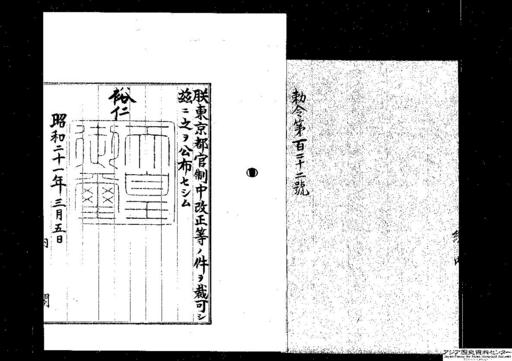 勅令第百二十二號
朕東京都官制中改正等ノ件ヲ裁可シ
茲ニ之ヲ公布セシム
裕仁
天皇
御璽
昭和二十一年三月五日
内閣
アジア歴史資料センター